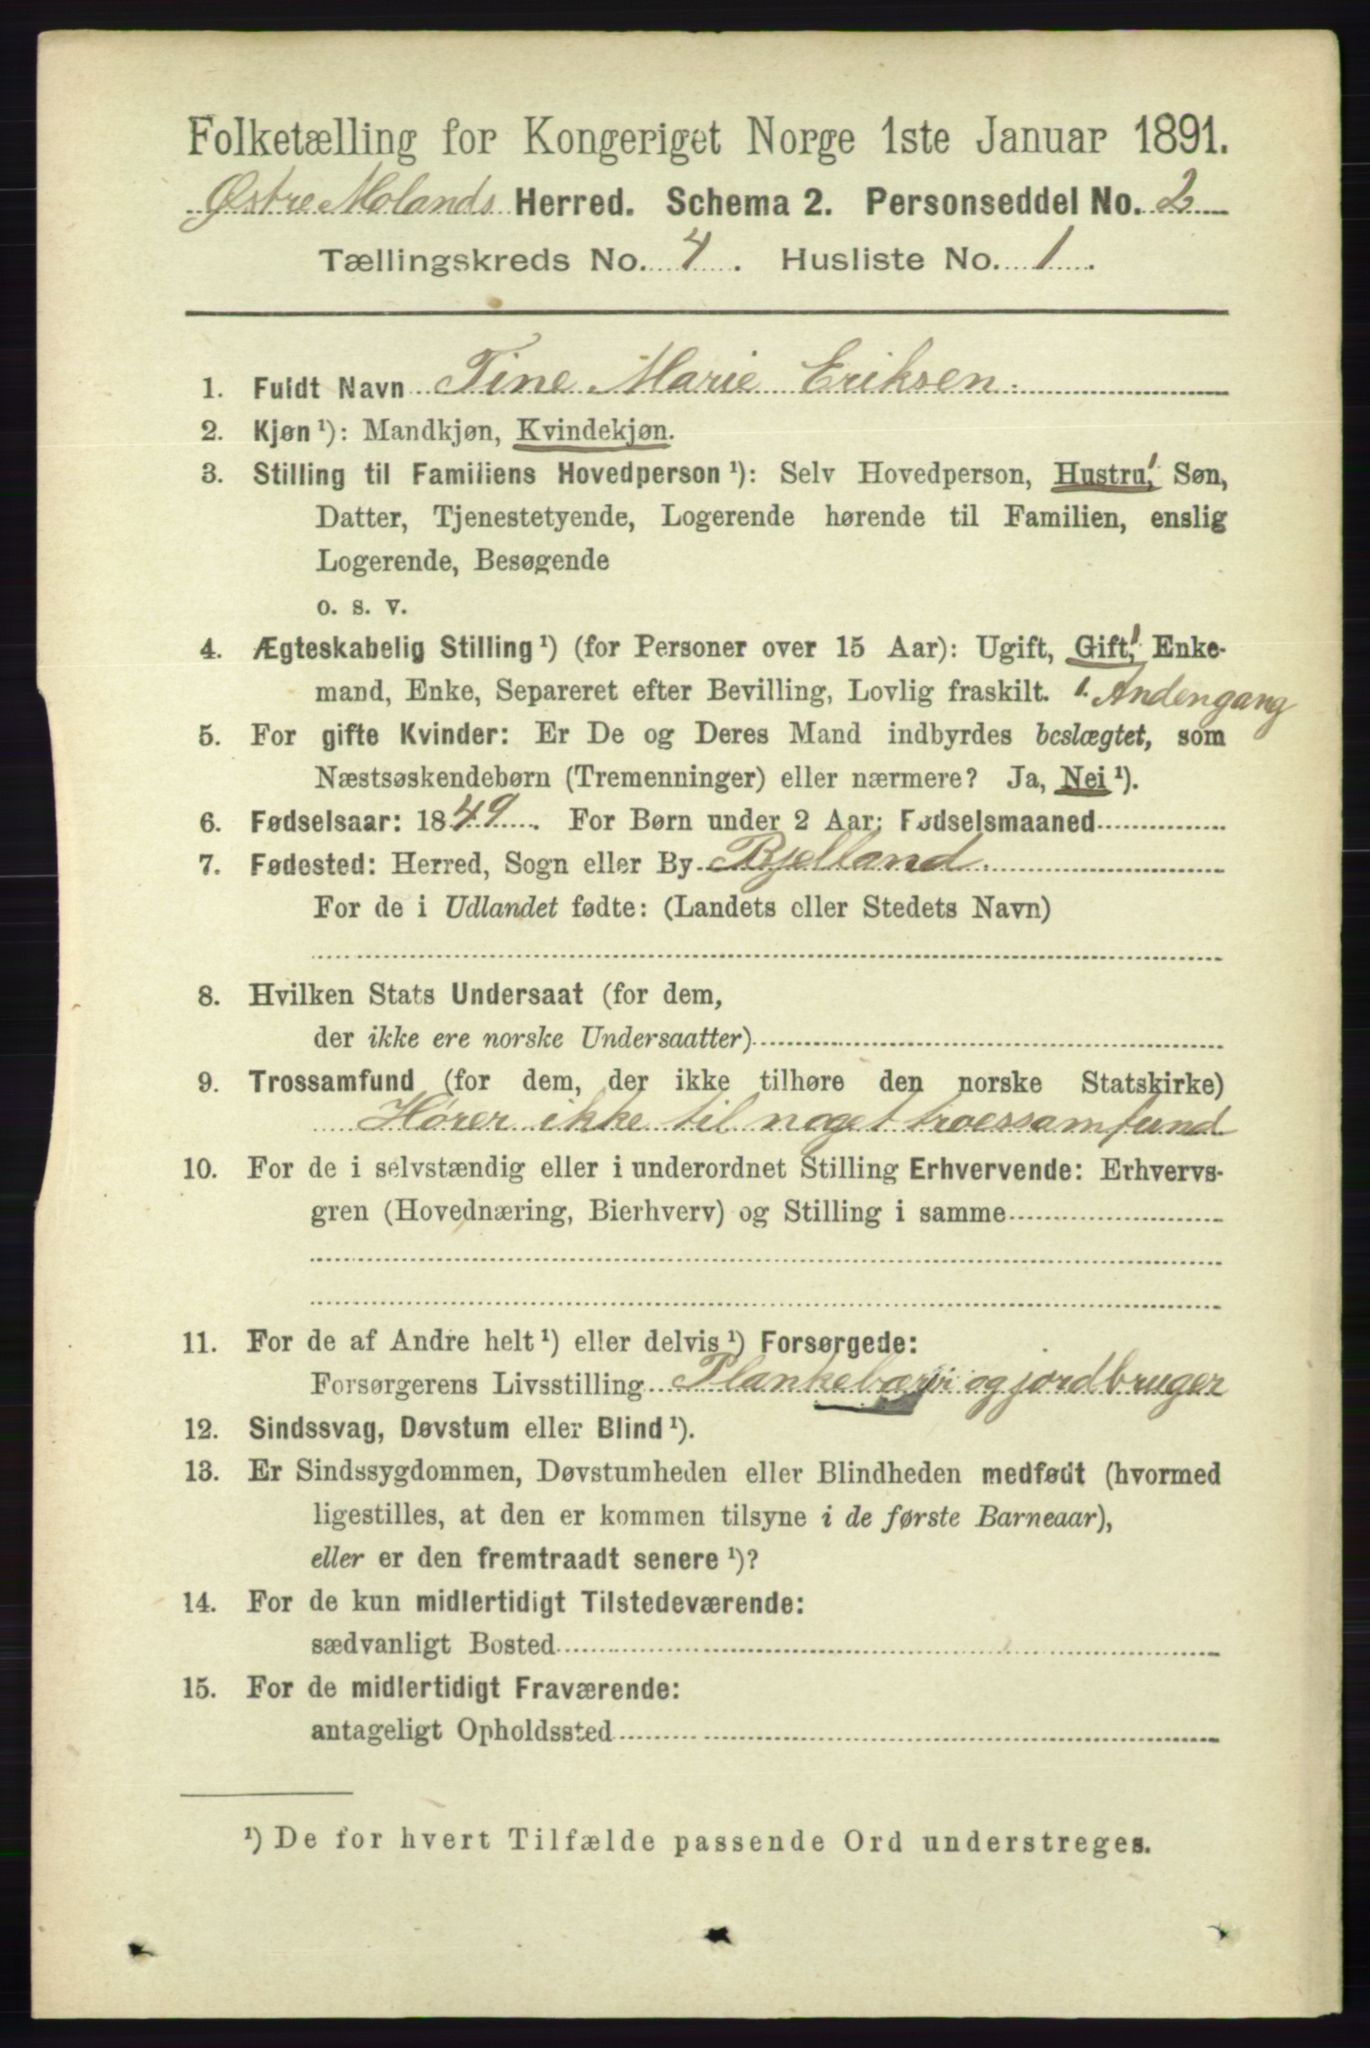 Folketælling for Kongeriget Norge 1ste Januar 1891.
Østre Molands Herred. Schema 2. Personseddel No. 2
Tællingskreds No. 4. Husliste No. 1.
1. Fuldt Navn Tine Marie Eriksen.
2. Kjøn¹): Mandkjøn, Kvindekjøn.
3. Stilling til Familiens Hovedperson¹): Selv Hovedperson, Hustru, Søn,
Datter, Tjenestetyende, Logerende hørende til Familien, enslig
Logerende, Besøgende
o. s. v.
4. Ægteskabelig Stilling¹) (for Personer over 15 Aar): Ugift, Gift, Enke-
mand, Enke, Separeret efter Bevilling, Lovlig fraskilt. 1. Andengang
5. For gifte Kvinder: Er De og Deres Mand indbyrdes beslægtet, som
Næstsøskendebørn (Tremenninger) eller nærmere? Ja, Nei¹).
6. Fødselsaar: 1849. For Børn under 2 Aar: Fødselsmaaned
7. Fødested: Herred, Sogn eller By Bjelland.
For de i Udlandet fødte: (Landets eller Stedets Navn)
8. Hvilken Stats Undersaat (for dem,
der ikke ere norske Undersaatter)
9. Trossamfund (for dem, der ikke tilhøre den norske Statskirke)
Hører ikke til noget troessamfund
10. For de i selvstændig eller i underordnet Stilling Erhvervende: Erhvervs-
gren (Hovednæring, Bierhverv) og Stilling i samme
11. For de af Andre helt¹) eller delvis¹) Forsørgede:
Forsørgerens Livsstilling Plankebærer og jordbruger
12. Sindssvag, Døvstum eller Blind¹).
13. Er Sindssygdommen, Døvstumheden eller Blindheden medfødt (hvormed
ligestilles, at den er kommen tilsyne i de første Barneaar),
eller er den fremtraadt senere¹)?
14. For de kun midlertidigt Tilstedeværende:
sædvanligt Bosted
15. For de midlertidigt Fraværende:
antageligt Opholdssted
¹) De for hvert Tilfælde passende Ord understreges.